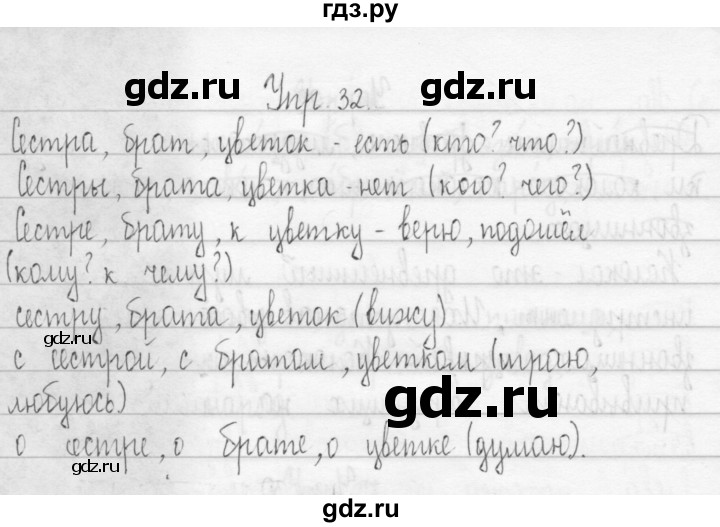 гдз.ру
gdz.ru gdz.ru
Упр. 32.
Сестра, брат, цветок - есть (кто? что?)
Сестры, брата, цветка - нет (кого? чего?)
Сестре, брату, к цветку - верю, подошёл
(кому? к чему?)
сестру, брата, цветок (вижу)
gdz.ru
с сестрой, с братом, цветком (играю,
любуюсь)
gdz.ru
о сестре, о брате, о цветке (думаю).
gdz.ru
gdz.ru